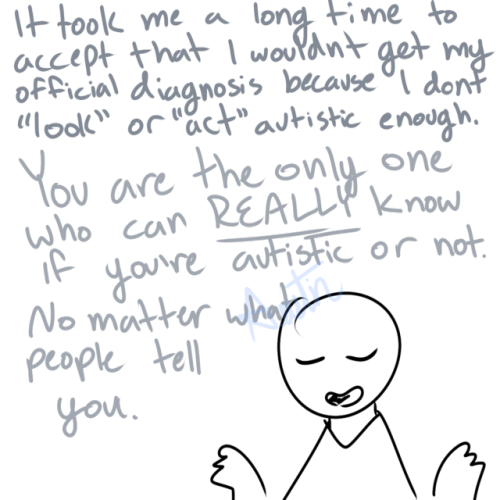 It took me a long time to
accept that I wouldn't get my
official diagnosis because I dont
"look" or "act" autistic enough.
You are the only one
who can REALLY know
if you're autistic or not.
No matter what
people tell
you.
Austin